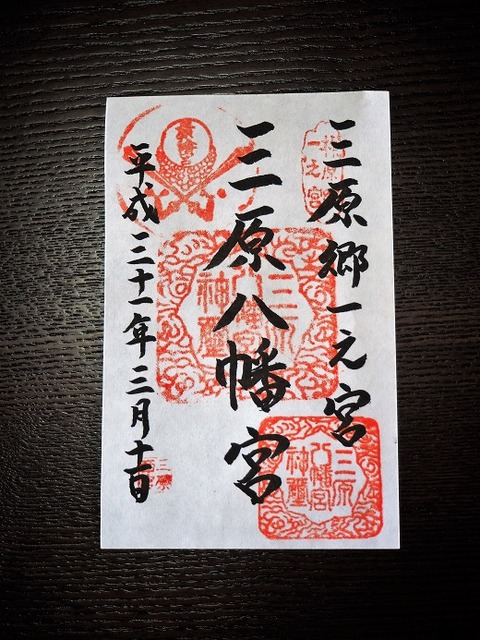 三原郷一之宮
三原八幡宮
平成三十一年三月十一日
三原
八幡宮
神璽
三原
八幡宮
神璽